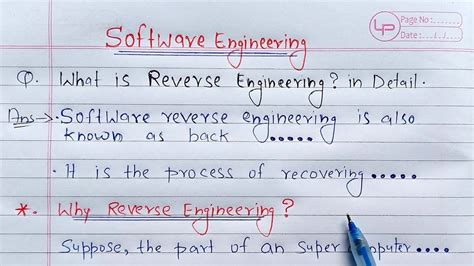 LP
Page No:......
Date: ..../..../....
Software Engineering
Q. What is Reverse Engineering? in Detail.
Ans →• Software reverse engineering is also
known as back .....
• It is the process of recovering.....
*. Why Reverse Engineering?
Suppose, the part of an Super computer ....